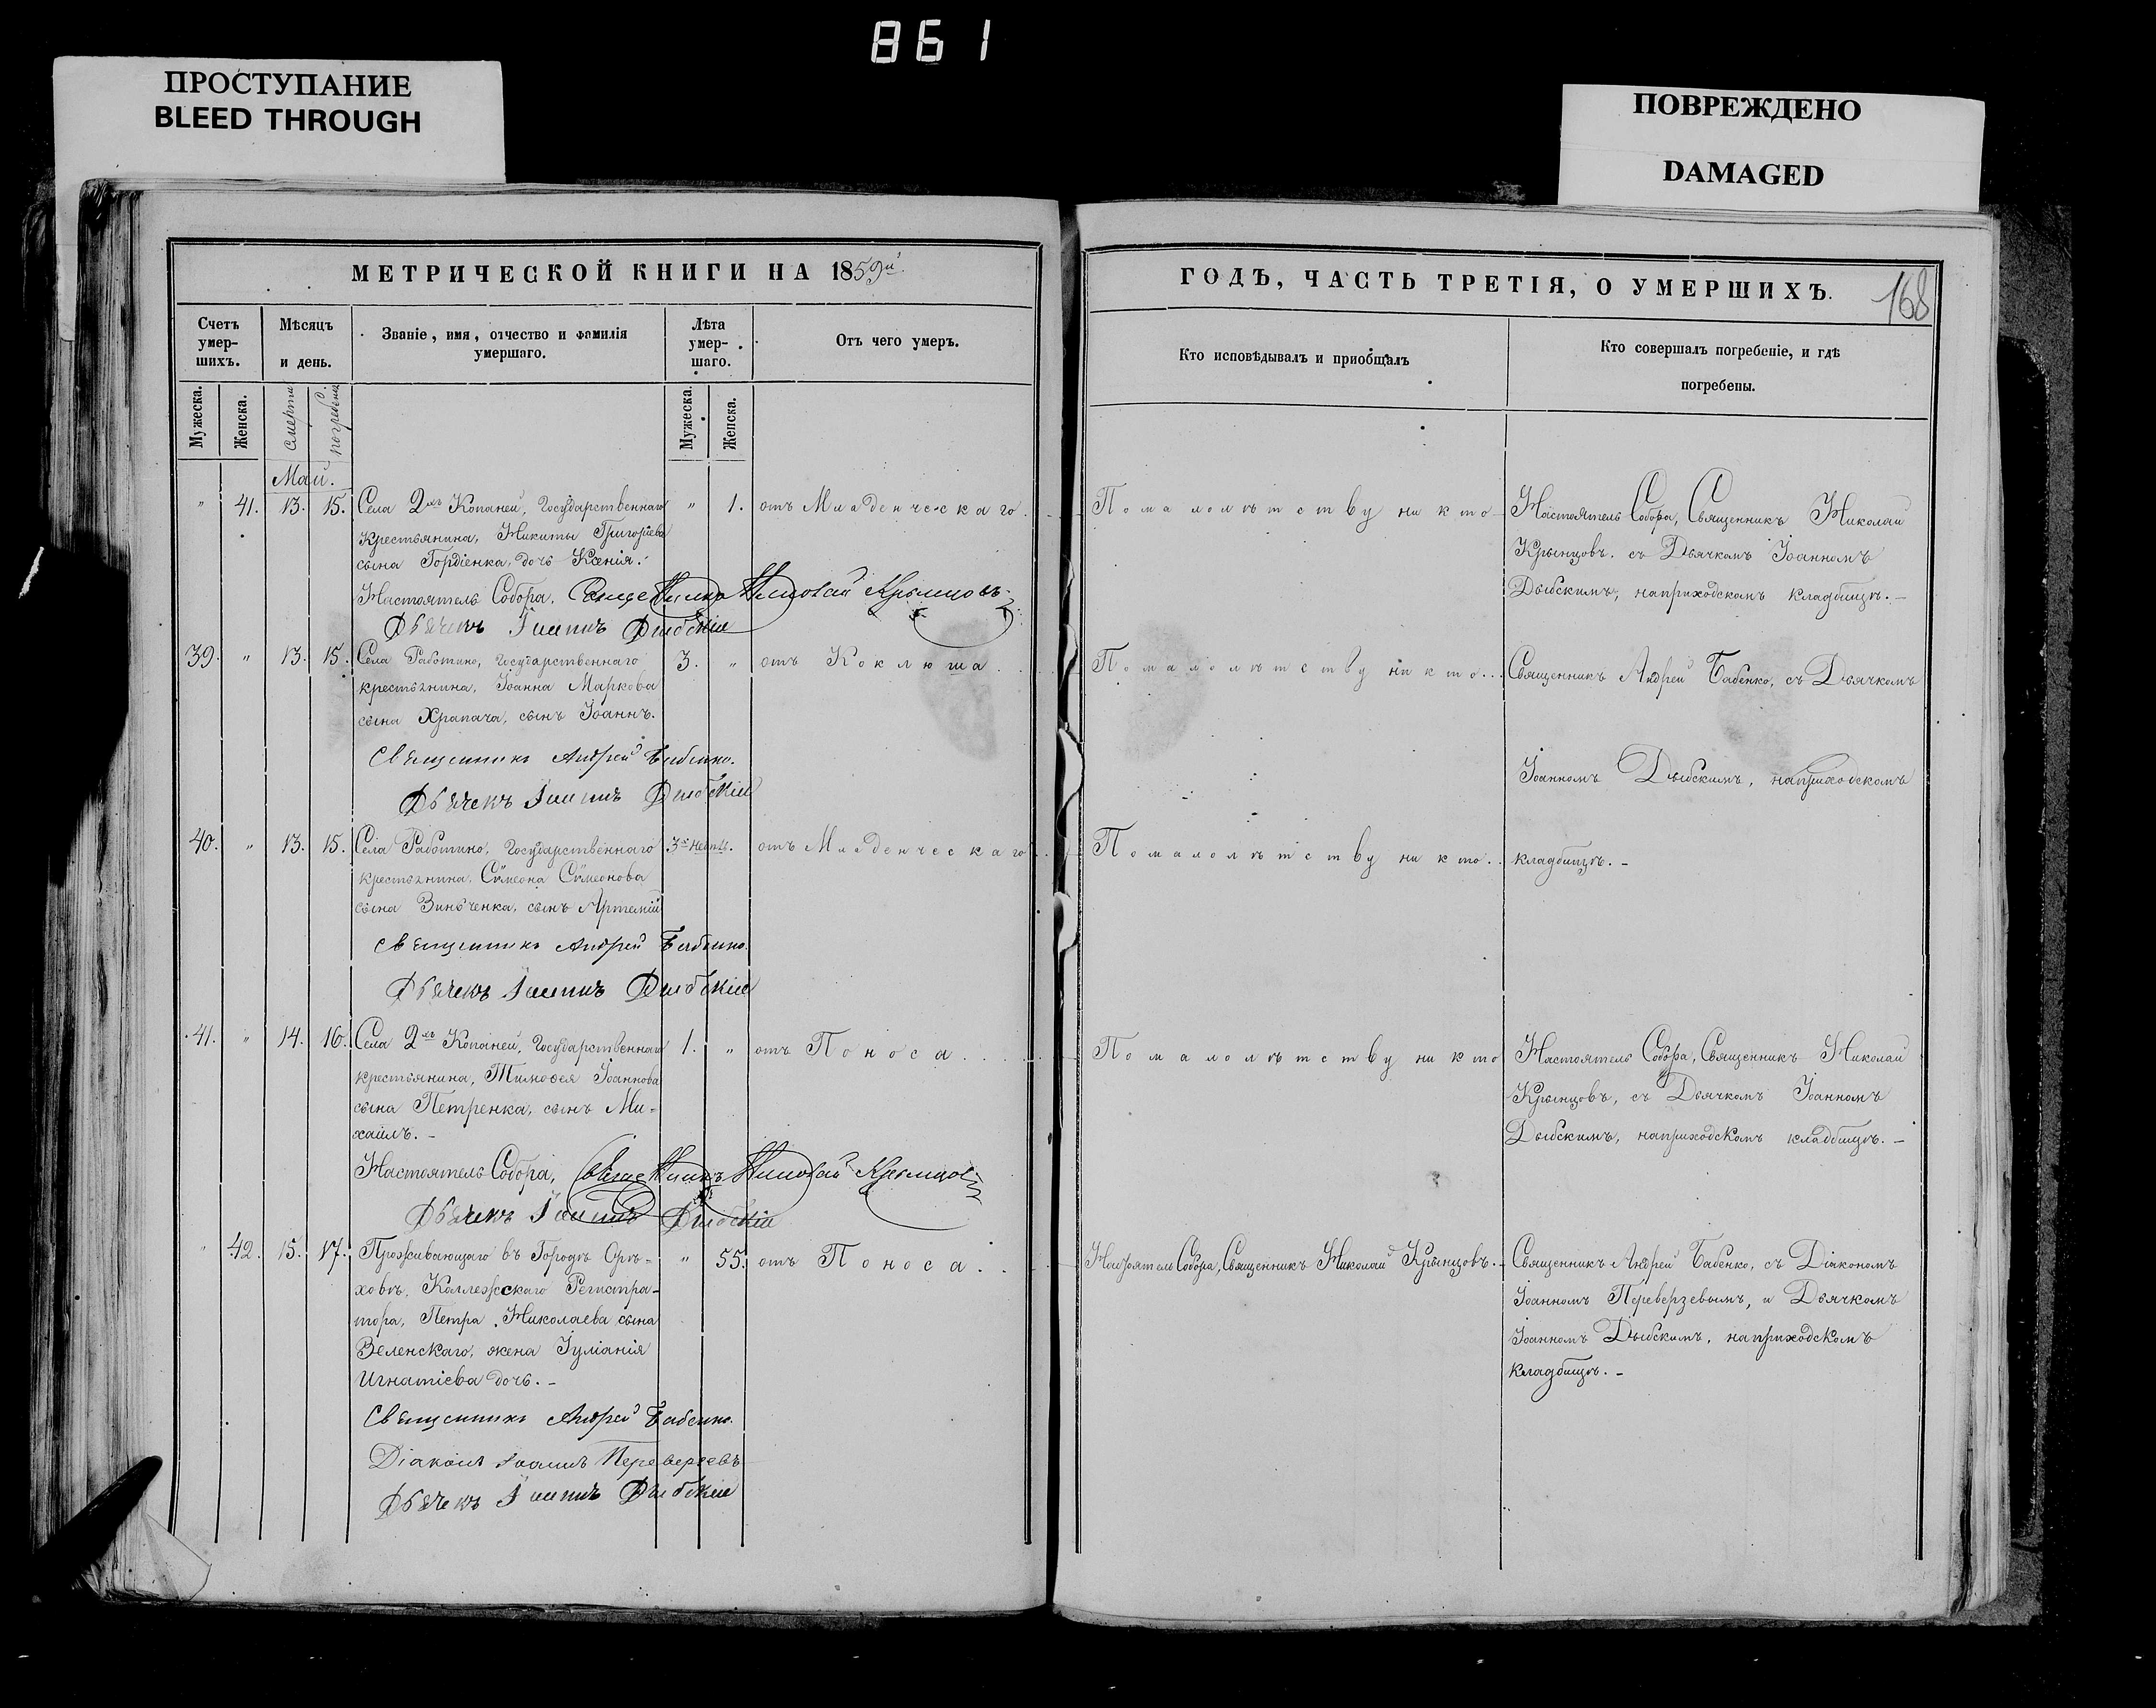 861
ПРОСТУПАНИЕ
BLEED THROUGH
ПОВРЕЖДЕНО
DAMAGED
МЕТРИЧЕСКОЙ КНИГИ НА 1859й.
Счетъ умер-шихъ.
Мѣсяцъ и день.
Званіе, имя, отчество и фамилія умершаго.
Лѣта умер-шаго.
Отъ чего умеръ.
Мужеска.
Женска.
смерти
погребенія
Мужеска.
Женска.
Май.
" 41. 13. 15. Села 2хъ Копаней, Государственнаго " 1. отъ Младенческаго
крестьянина, Никиты Григорьева
сына Гордіенка, дочь Ксенія.
Настоятель Собора, Священникъ Николай Крынцовъ.
Дьячекъ Іоаннъ Дыбскій
39. " 13. 15. Села Работино, Государственнаго 3. " отъ Коклюша
крестьянина, Іоанна Маркова
сына Храпача, сынъ Іоаннъ.
Священникъ Андрей Бабенко.
Дьячекъ Іоаннъ Дыбскій
40. " 13. 15. Села Работино, Государственнаго 3х недѣль. отъ Младенческаго
крестьянина, Сѵмеона Сѵмеонова
сына Зинченка, сынъ Артемій
Священникъ Андрей Бабенко.
Дьячекъ Іоаннъ Дыбскій
41. " 14. 16. Села 2хъ Копаней, Государственнаго 1. " отъ Поноса
крестьянина, Тимоѳея Іоаннова
сына Петренка, сынъ Ми=
хаилъ. –
Настоятель Собора, Священникъ Николай Крынцовъ
Дьячекъ Іоаннъ Дыбскій
" 42. 15. 17. Проживающаго въ Городѣ Орѣ= " 55. отъ Поноса.
ховѣ, Коллежскаго Регистра-
тора, Петра Николаева сына
Зеленскаго, жена Іуліанія
Игнатіева дочь. –
Священникъ Андрей Бабенко.
Діаконъ Іоаннъ Переверзевъ
Дьячекъ Іоаннъ Дыбскій
ГОДЪ, ЧАСТЬ ТРЕТІЯ, О УМЕРШИХЪ.
168
Кто исповѣдывалъ и приобщалъ
Кто совершалъ погребеніе, и гдѣ
погребены.
Помалолѣтству никто Настоятель Собора, Священникъ Николай
Крынцовъ. съ Дьячкомъ Іоанномъ
Дыбскимъ, наприходскомъ кладбищѣ. –
Помалолѣтству никто... Священникъ Андрей Бабенко, съ Дьячкомъ
Іоанномъ Дыбскимъ, наприходскомъ
Помалолѣтству никто.. кладбищѣ. –
Помалолѣтству никто Настоятель Собора, Священникъ Николай
Крынцовъ, съ Дьячкомъ Іоанномъ
Дыбскимъ, наприходскомъ кладбищѣ. –
Настоятель Собора, Священникъ Николай Крынцовъ. – Священникъ Андрей Бабенко, съ Діакономъ
Іоанномъ Переверзевымъ, и Дьячкомъ
Іоанномъ Дыбскимъ, наприходскомъ
кладбищѣ. –